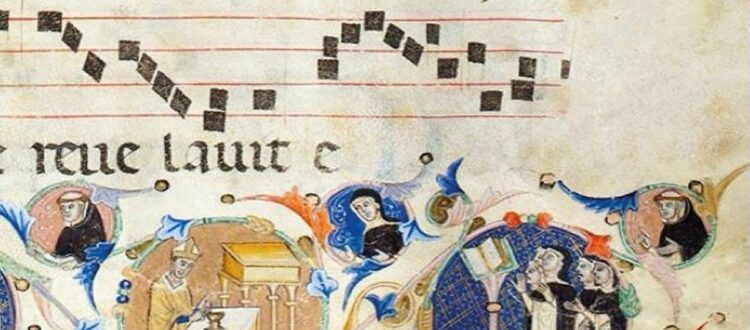 e reue lauit e